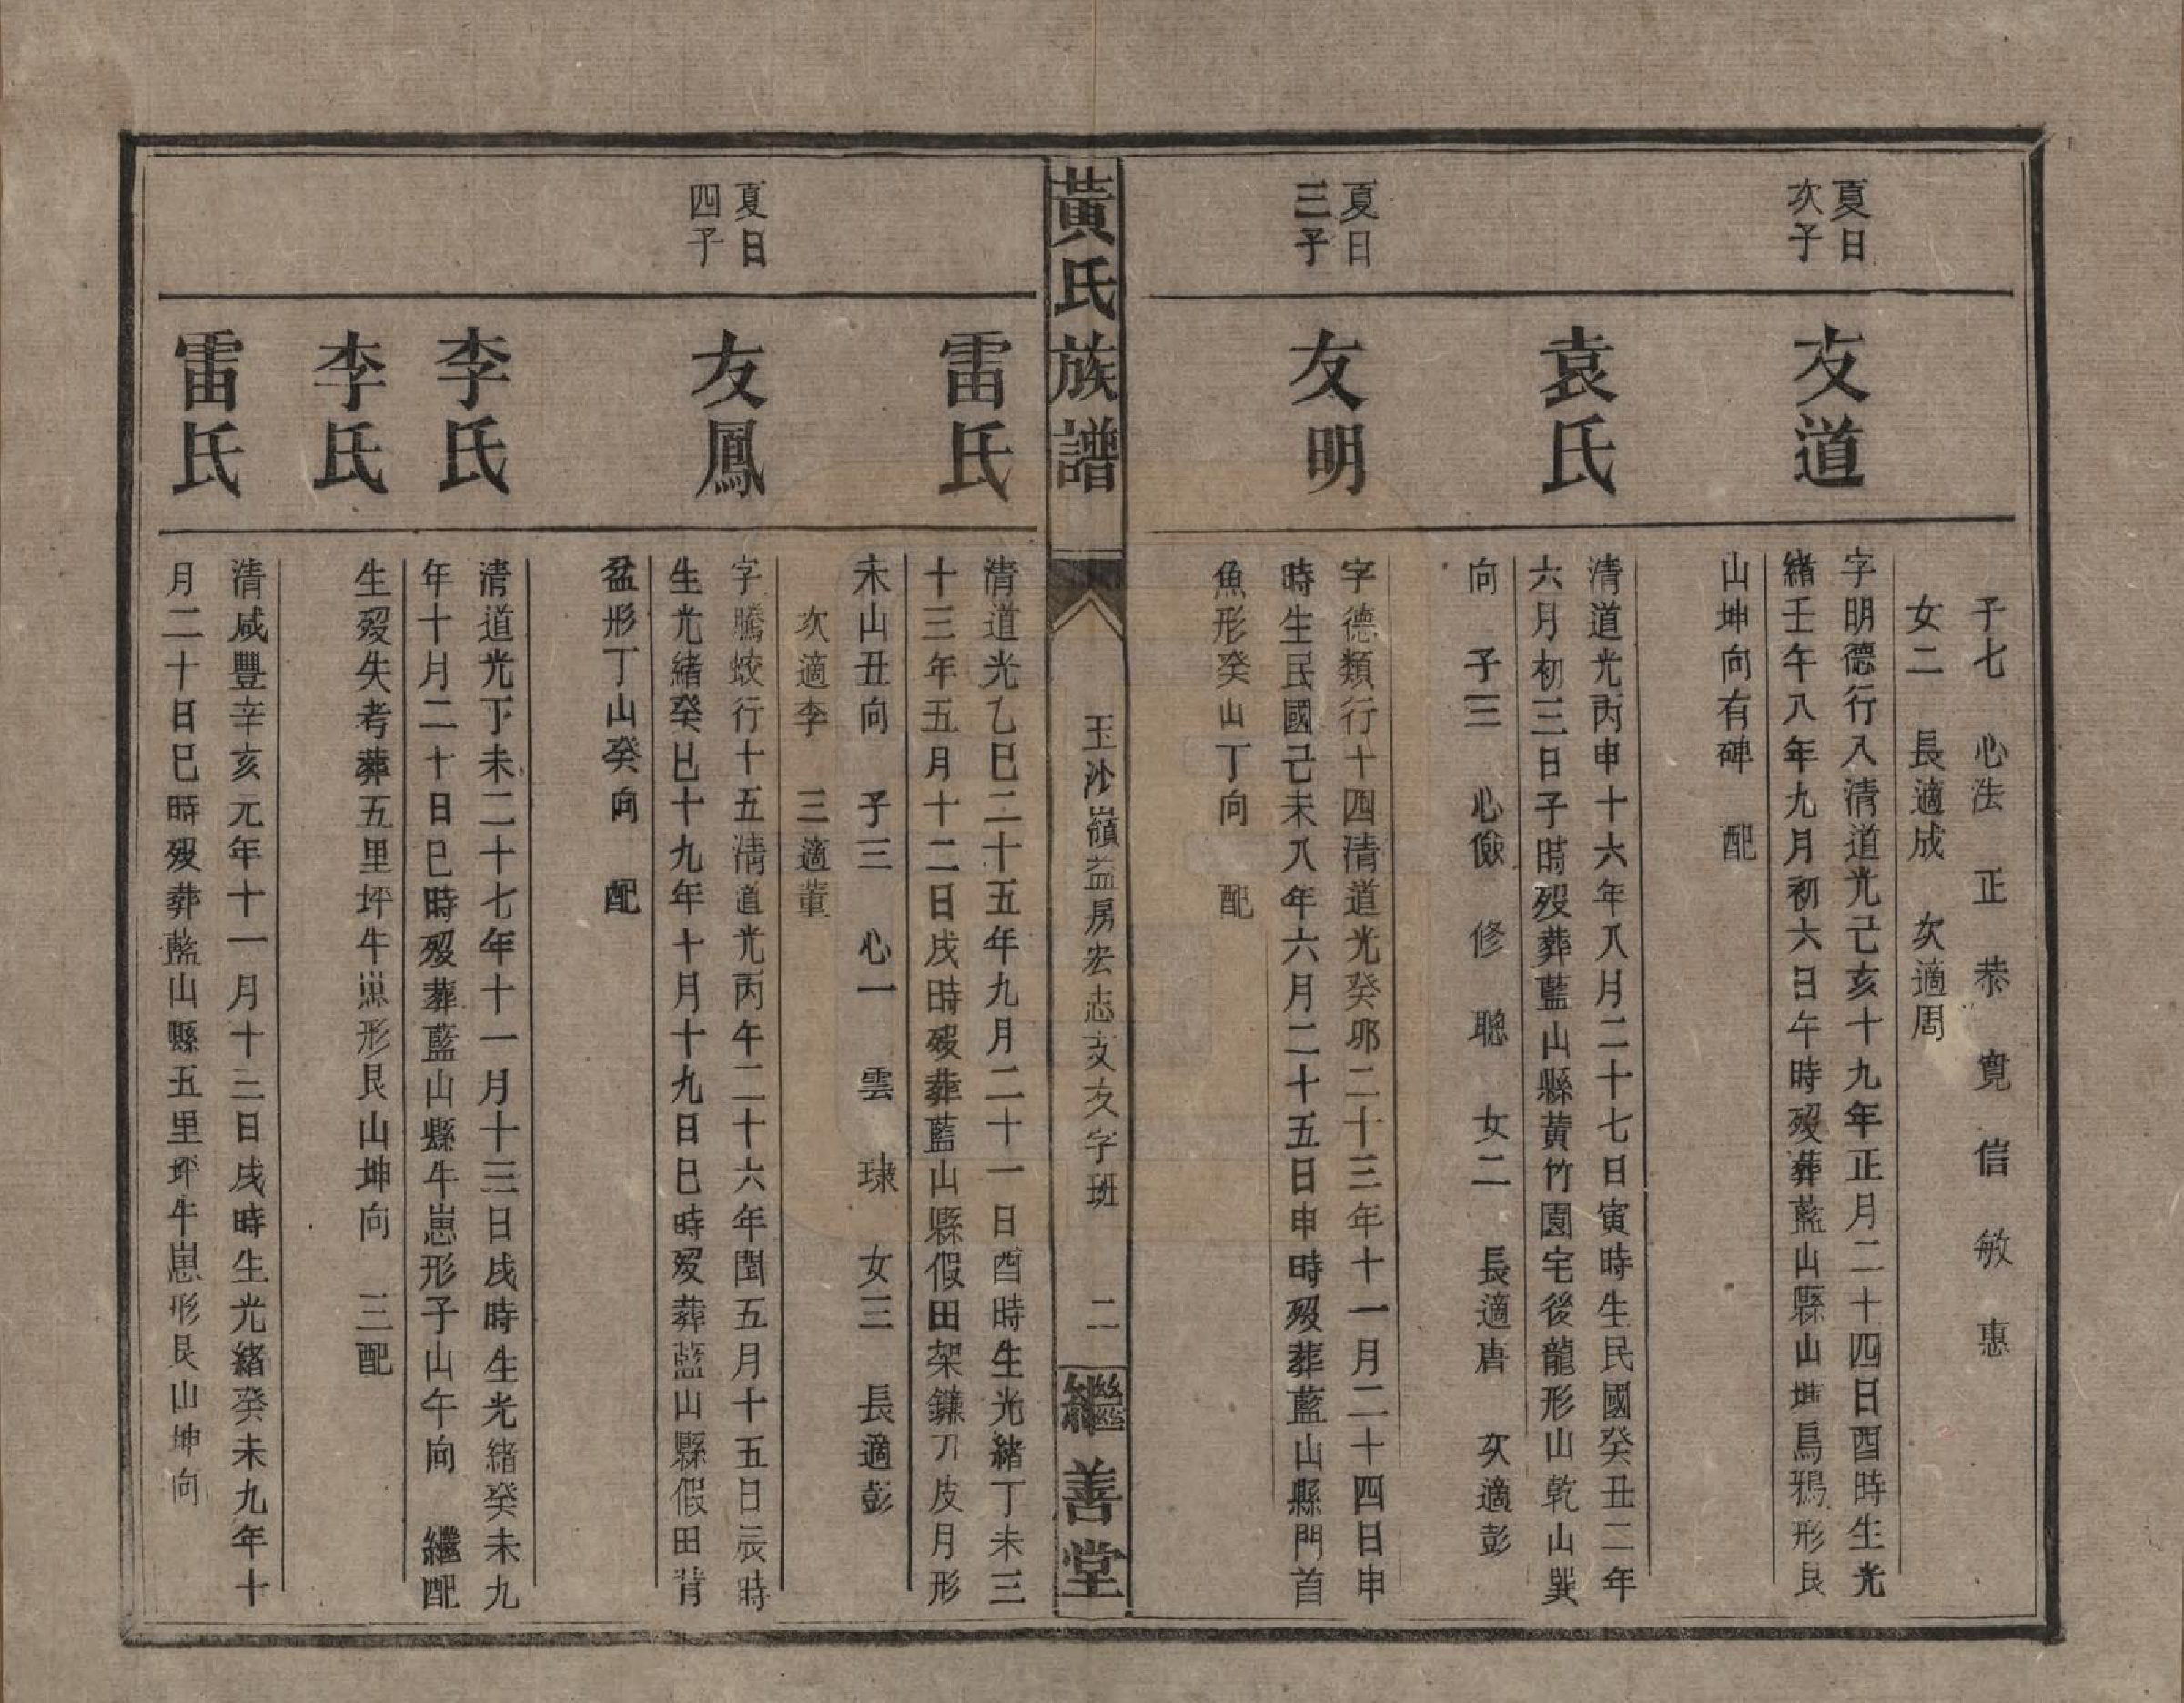 子七　心法　正　恭　寬　信　敏　惠
女二　長適成　次適周
夏日
次子
友道
字明德行八清道光己亥十九年正月二十四日酉時生光
緒壬午八年九月初六日午時歿葬藍山縣山塘烏鴉形艮
山坤向有碑　配
袁氏
清道光丙申十六年八月二十七日寅時生民國癸丑二年
六月初三日子時歿葬藍山縣黃竹園宅後龍形山乾山巽
向　子三　心儉　修　聰　女二　長適唐　次適彭
夏日
三子
友明
字德類行十四清道光癸卯二十三年十一月二十四日申
時生民國己未八年六月二十五日申時歿葬藍山縣門首
魚形癸山丁向　配
黃氏族譜
玉沙嶺益房宏志支友字班　二
繼善堂
雷氏
清道光乙巳二十五年九月二十一日酉時生光緒丁未三
十三年五月十二日戌時歿葬藍山縣假田架鐮刀皮月形
未山丑向　子三　心一　雲　球　女三　長適彭
次適李　三適董
夏日
四子
友鳳
字騰蛟行十五清道光丙午二十六年閏五月十五日辰時
生光緒癸巳十九年十月十九日巳時歿葬藍山縣假田背
盆形丁山癸向　配
李氏
清道光丁未二十七年十一月十三日戌時生光緒癸未九
年十月二十日巳時歿葬藍山縣牛崽形子山午向　繼配
李氏
生歿失考葬五里坪牛崽形艮山坤向　三配
雷氏
清咸豐辛亥元年十一月十三日戌時生光緒癸未九年十
月二十日巳時歿葬藍山縣五里坪牛崽形艮山坤向